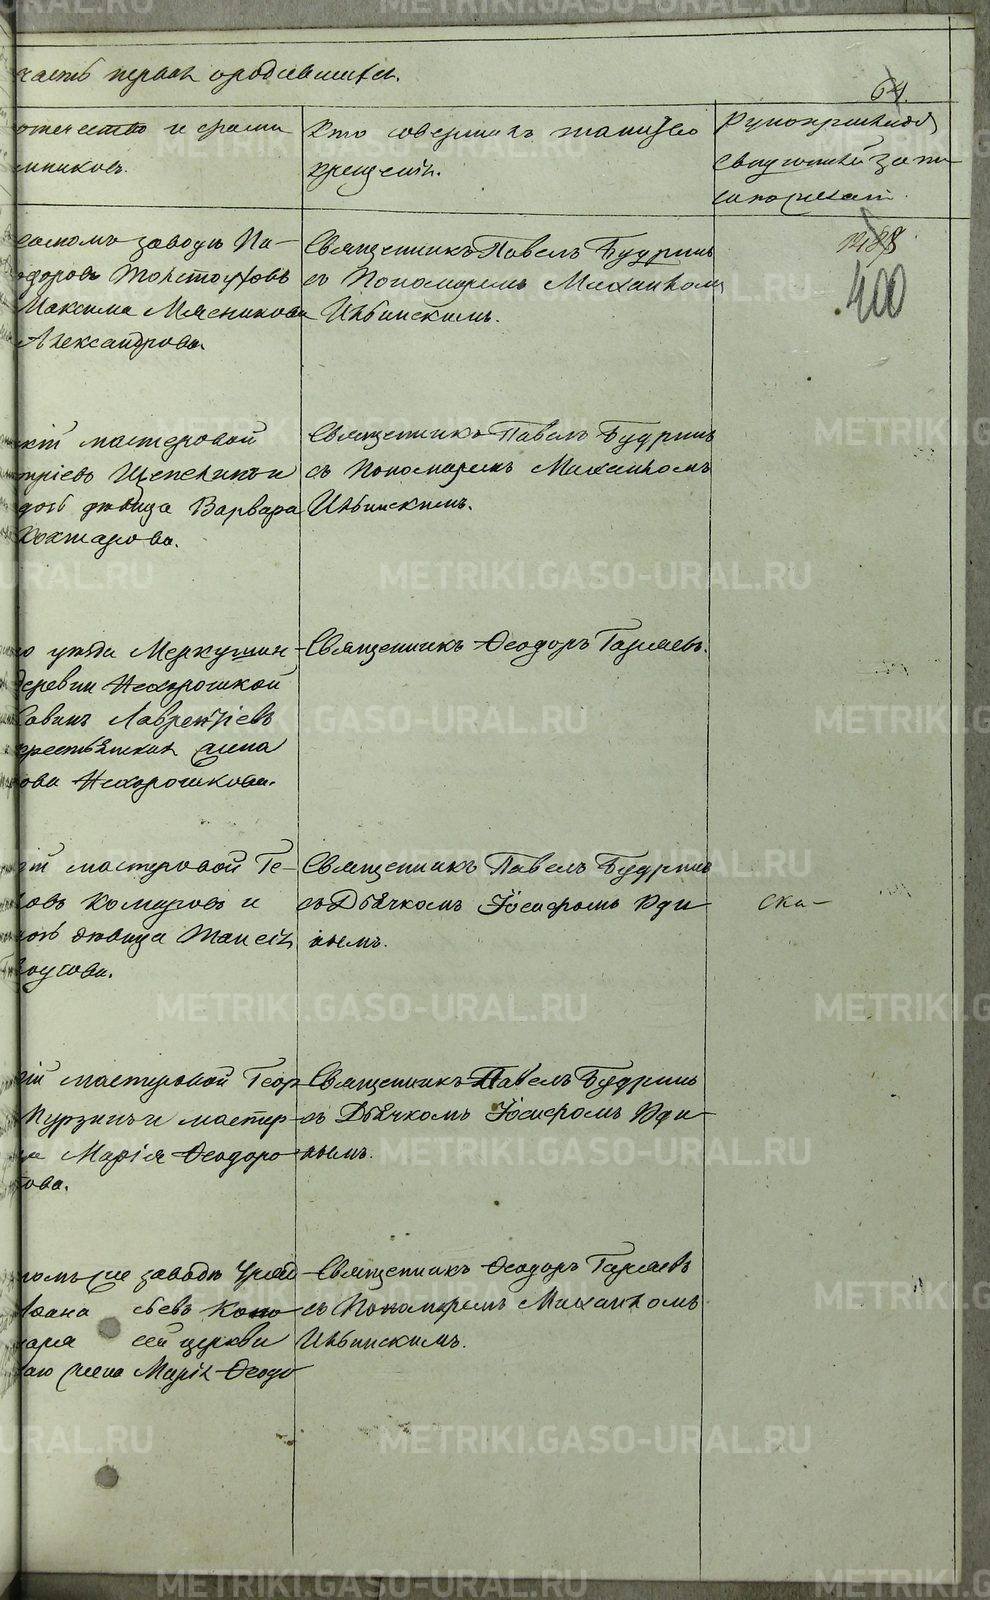 часть первая о родившихся.
64.
отчество и фами
емниковъ.
Кто совершалъ таинство
крещенія.
Рукоприкладств
свидѣтелей запи
си по желанію.
заводѣ
Толстоуховъ
Максима Мясникова
Александрова.
Священникъ Павелъ Будринъ
съ Пономаремъ Михаиломъ
Ивбинскимъ.
400
кій мастеровой
трiевъ Щепелинъ и
дочь дѣвица Варвара
Кохтарова.
Священникъ Павелъ Будринъ
съ Пономаремъ Михаиломъ
Ивбинскимъ.
го уѣзда Меркушин-
деревни Нехорошкой
Саввинъ Лаврентіевъ
крестьянка Анна
рова Нехорошкова.
Священникъ Ѳеодоръ Гаряевъ.
кій мастеровой Ге-
Комаровъ и
дочь дѣвица Таисія
Священникъ Павелъ Будринъ
съ Дьячкомъ Іосифомъ Юди-
нымъ.
ска-
кій мастеровой Геор
Пурзинъ и мастер-
ка Марія Ѳеодоро
това.
Священникъ Павелъ Будринъ
съ Дьячкомъ Іосифомъ Юди-
нымъ.
заводѣ
Іоанна
сей церкви
Марія Ѳеодо
Священникъ Ѳеодоръ Гаряевъ
съ Пономаремъ Михаиломъ
Ивбинскимъ.
METRIKI.GASO-URAL.RU